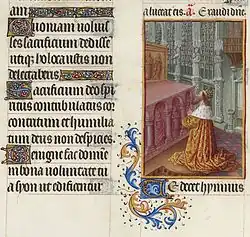 am
Quoniam voluis
ses sacrificium dedisse
utiq; holocaustis non
delectaberis
Sacrificium deo spi
ritus contribulatus cor
contritum et humilia
tum deus non despicies
Benigne fac domine
in bona voluntate tu
a syon ut edificentur
a. Exaudi dne
Te decet hymnus